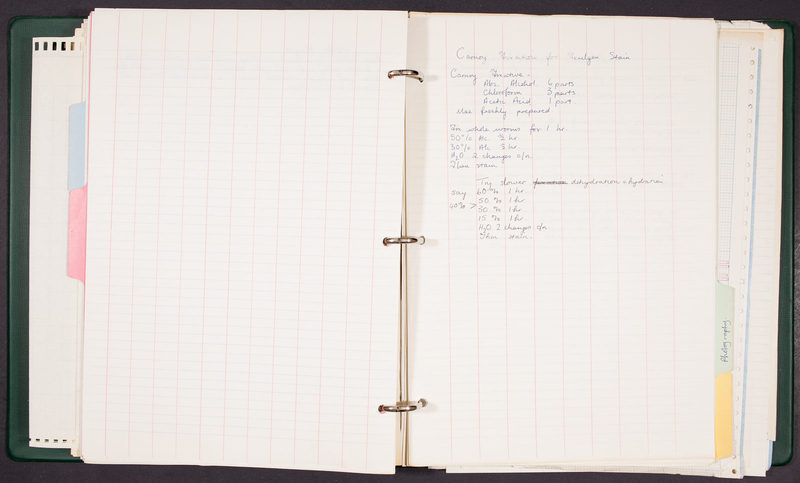 Carnoy Fixation for Feulgen Stain
Carnoy Fixative -
Abs. Alcohol. 6 parts
Chloroform 3 parts
Acetic Acid 1 part.
Use freshly prepared.
Fix whole worms for 1 hr.
50% Alc. ½ hr
30% Alc ½ hr
H2O 2 changes o/n
Then stain
Try slower dehydration + hydration
say 60% 1 hr.
50% 1 hr
40% > 30% 1 hr.
15% 1 hr.
H2O 2 changes o/n
Then stain.
Photography